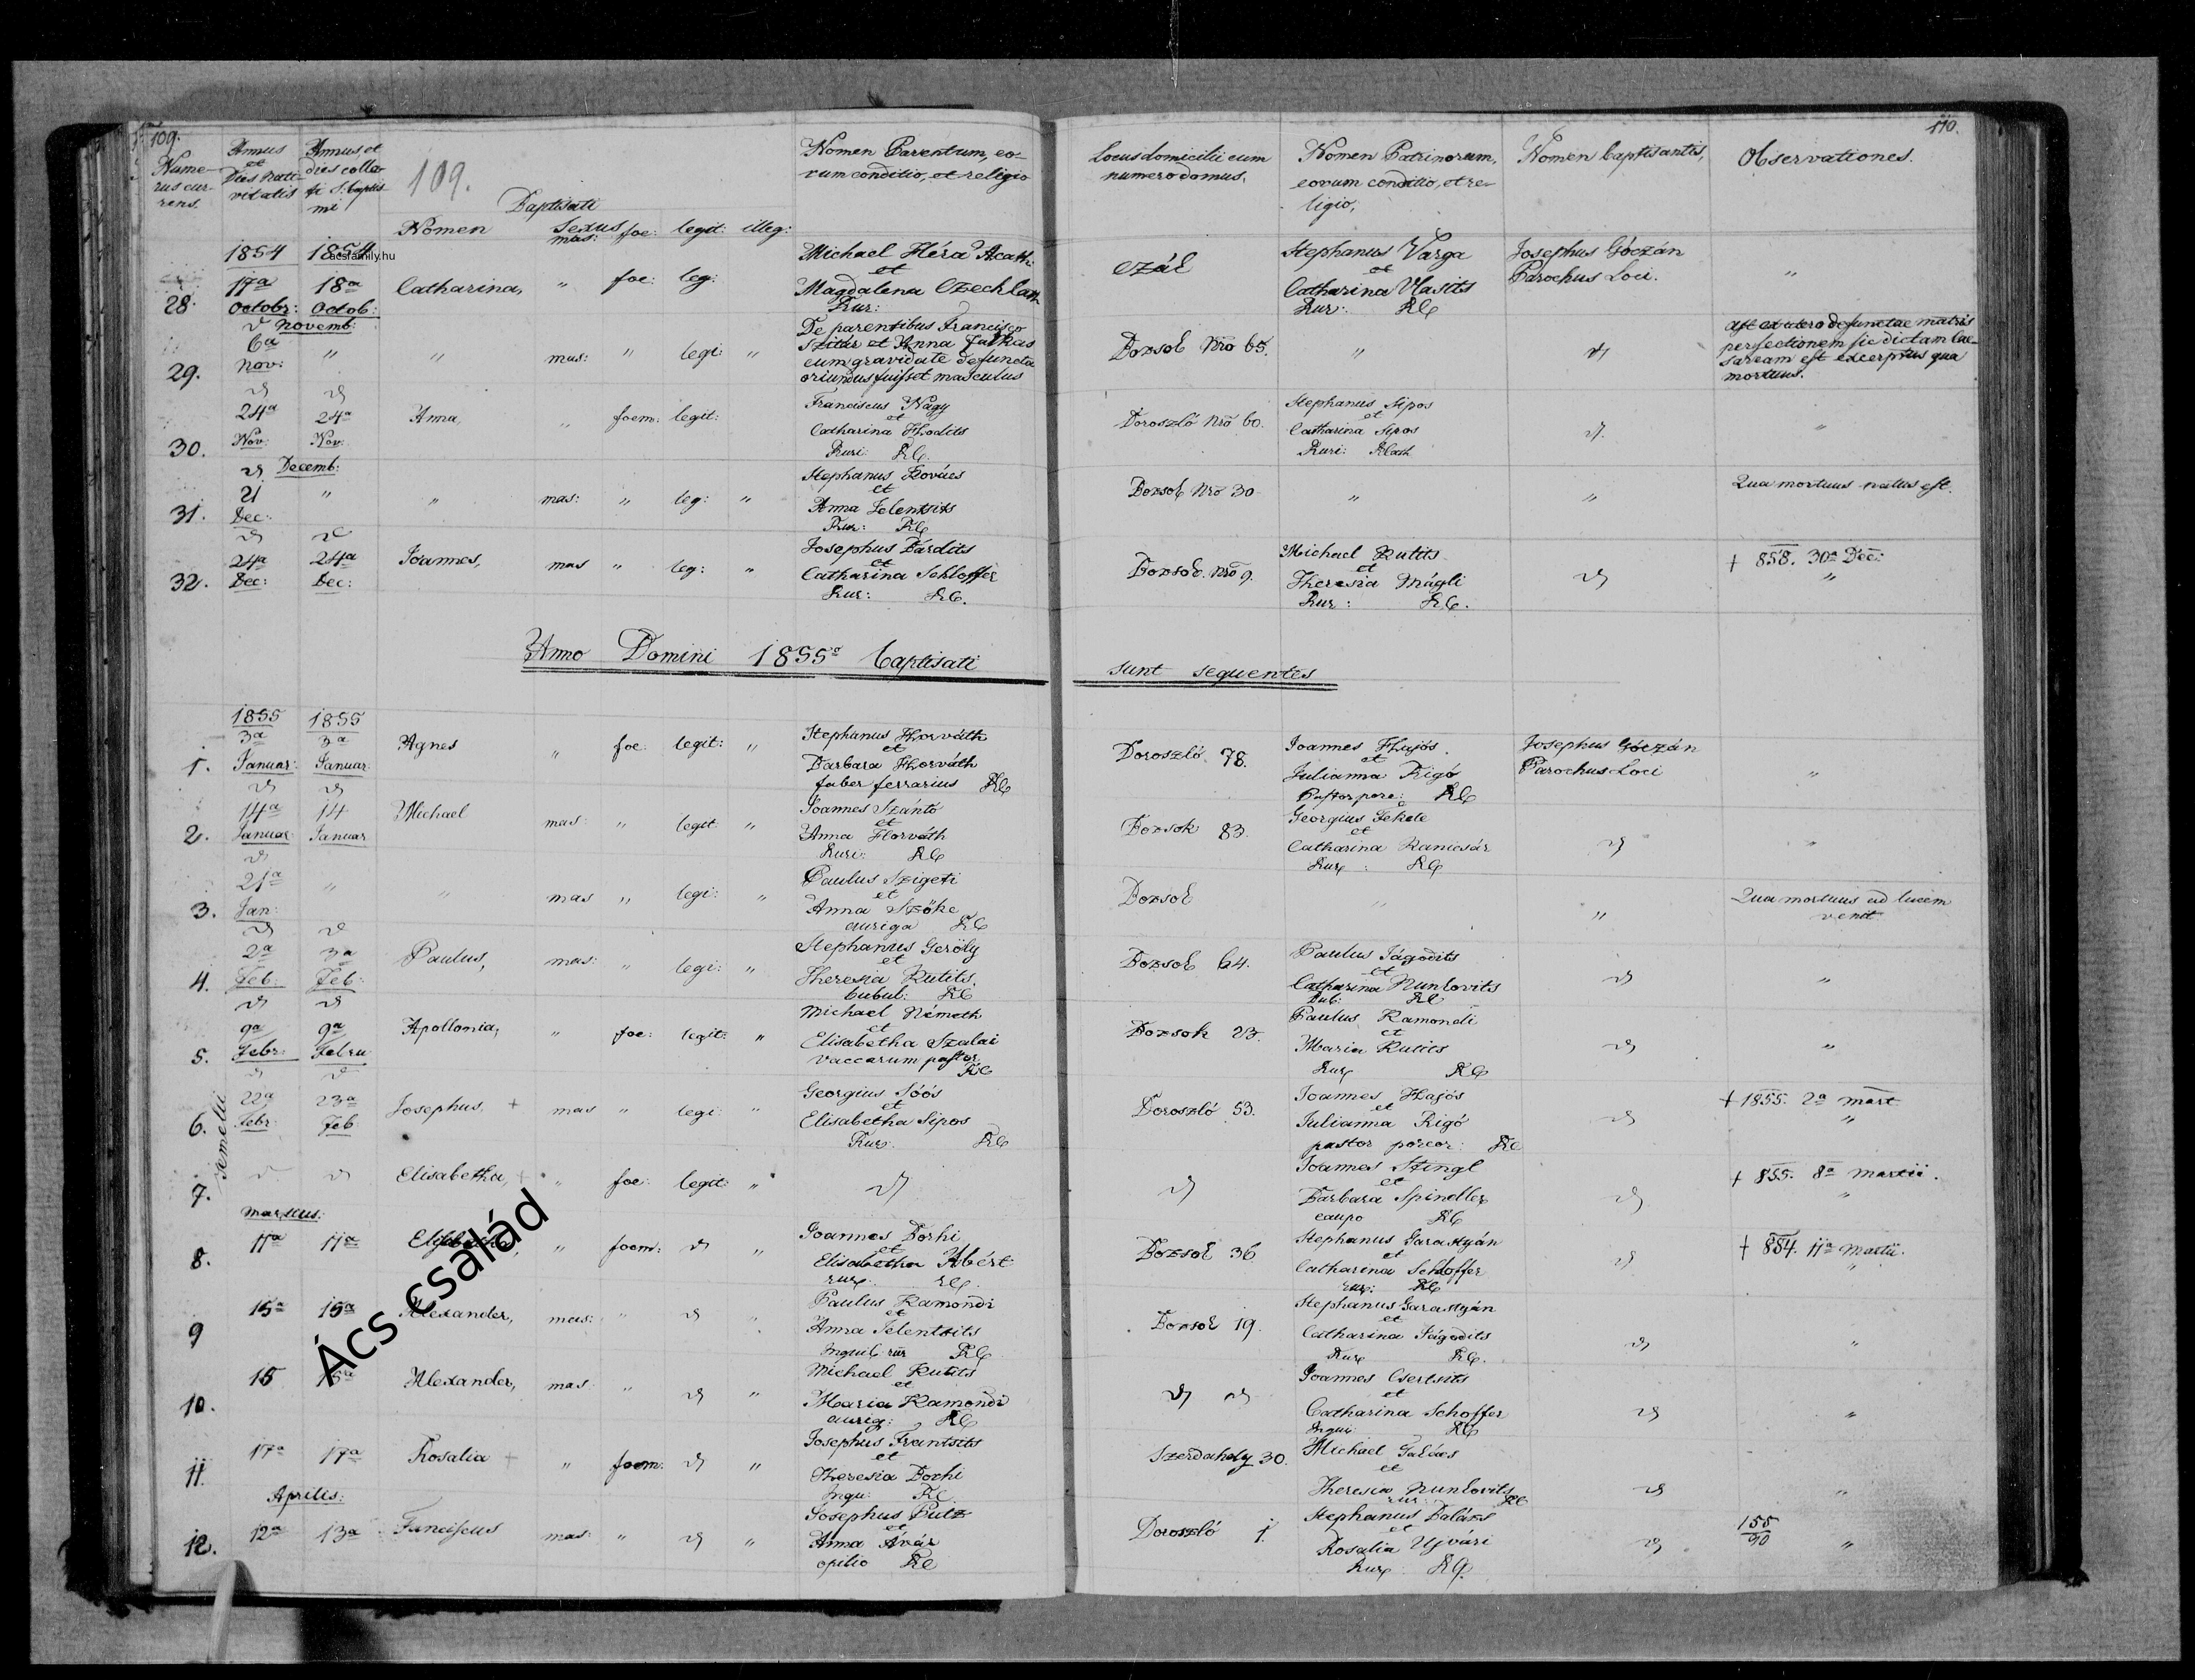 109.
110.
Nume-
rus cur-
rens.
Annus
et
Dies nati-
vitatis
Annus, et
dies colla-
ti S. Baptis-
mi
109.
Baptisati
Nomen
Sexus
mas: foe: legit: illeg:
Nomen Parentum, eo-
rum conditio, et religio
Locus domicilii cum
numero domus.
Nomen Patrinorum,
eorum conditio, et re-
ligio,
Nomen baptisantis,
Observationes.
1854 1854
acsfamily.hu
28. 17a Octobr: 18a Octob: Catharina, " foe: leg:
Michael Héra
et
Magdalena
Rur:
Stephanus Varga
et
Catharina Vlasits
Rur: RC
Josephus Góczán
Parochus Loci.
"
Novemb:
29. 6a Nov: " " mas: " legi: "
De parentibus Francisco
et Anna Farkas
cum gravidate defuncta
oriundus fuisset masculus
Dozsok Nro 65.
"
defunctae matris
persectionem sic dictam cae-
saream est excerptus qua
mortuus.
30. 24a Nov: 24a Nov: Anna, " foem: legit:
Franciscus Nagy
et
Catharina Hodits
Ruri: RC.
Doroszló Nro 60.
Stephanus Sipos
et
Catharina Sipos
Ruri: RCath
"
Decemb:
31. 21 Dec: " " mas: " leg: "
Stephanus Kovács
et
Anna Jelentsits
Rur: RC
Dozsok Nro 30
" "
Qua mortuus natus est.
32. 24a Dec: 24a Dec: Joannes, mas " leg: "
Josephus Bárdits
et
Catharina Schloffer
Rur: RC.
Dozsok Nro 9.
Michael Kutits
et
Theresia Mágli
Rur: RC.
+ 858. 30a Dec:
"
Anno Domini 1855o baptisati sunt sequentes
1855 1855
1. 3a Januar: 3a Januar Agnes " foe: legit: "
Stephanus Horváth
et
Barbara Horváth
faber ferrarius RC
Doroszló 78.
Joannes Hajós.
et
Julianna Rigó
Pastor porc: RC
Josephus Góczán
Parochus Loci
"
2. 14a Januar 14 Januar Michael mas: " legit: "
Joannes Szántó
et
Anna Horváth
Ruri: RC
Dozsok 83.
Georgius Fekete
et
Catharina Kanicsár
Rur: RC
"
3. 21a Jan: " " mas " legi: "
Paulus Szigeti
et
Anna Szőke
auriga RC
Dozsok
" "
Qua mortuus ad lucem
venit
4. 2a Feb: 3a Feb: Paulus, mas: " legi: "
Stephanus Geröly
et
Theresia Kutits.
bubul: RC
Dozsok 64.
Paulus Jágodits
et
Catharina Nunkovits
Bub: RC
"
5. 9a Febr: 9a Febru Apollonia, " foe: legit: "
Michael Németh
et
Elisabetha Szalai
vaccarum pastor.
RC
Dozsok 23.
Paulus Ramondi
et
Maria Kutits
Rur RC
"
Gemelli
6. 22a Febr: 23a Feb Josephus, + mas " legi: "
Georgius Soós
et
Elisabetha Sipos
Rur: RC
Doroszló 53.
Joannes Hajós
et
Julianna Rigó
pastor porcor: RC
+ 1855. 2a Mart
"
7. Elisabetha, + " foe: legit: "
Joannes Stingl
et
Barbara Spindler
caupo RC
+ 855. 8a Martii.
"
Martius:
8. 11a 11a Elisabetha, " foem: "
Joannes Dorhi
et
Elisabetha Albért
rur: RC.
Dozsok 36
Stephanus Garastyán
et
Catharina Schloffer
rur: RC
+ 854. 11a Martii.
"
9 15a 15a Alexander, mas: " "
Paulus Ramondi
et
Anna Jelentsits
Inquil: rur RC
Dozsok 19.
Stephanus Garastyán
et
Catharina Jágodits
Rur RC.
"
10. 15 15a Alexander, mas: " "
Michael Kutits
et
Maria Ramondi
aurig: RC
Joannes Csertsits
et
Catharina Schoffer
Inqui: RC
"
11. 17a 17a Rosalia + " foem: "
Josephus Frantsits
et
Theresia Dorhi
Inqu: RC
Szerdahely 30.
Michael Takács
et
Theresia Nunkovits
rur: RC
"
Aprilis:
12. 12a 13a Franciscus mas: " "
Josephus Putz
et
Anna Avár
opilio RC
Doroszló 1.
Stephanus Balázs
et
Rosalia Ujvári
Rur RC.
155
90
"
Ács család